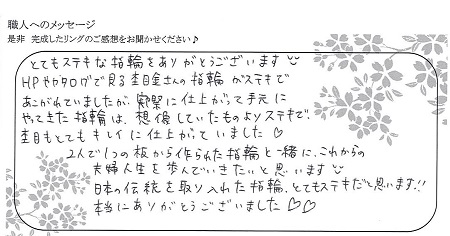 職人へのメッセージ
是非 完成したリングのご感想をお聞かせください♪
とてもステキな指輪をありがとうございます
HPやカタログで見る杢目金さんの指輪がステキで
あこがれていましたが、実際に仕上がって手元に
やってきた指輪は、想像していたものよりステキで、
杢目もとてもキレイに仕上がっていました♡
2人で1つの板から作られた指輪と一緒に、これからの
夫婦人生を歩んでいきたいと思います
日本の伝統を取り入れた指輪、とてもステキだと思います!!
本当にありがとうございました♡♡